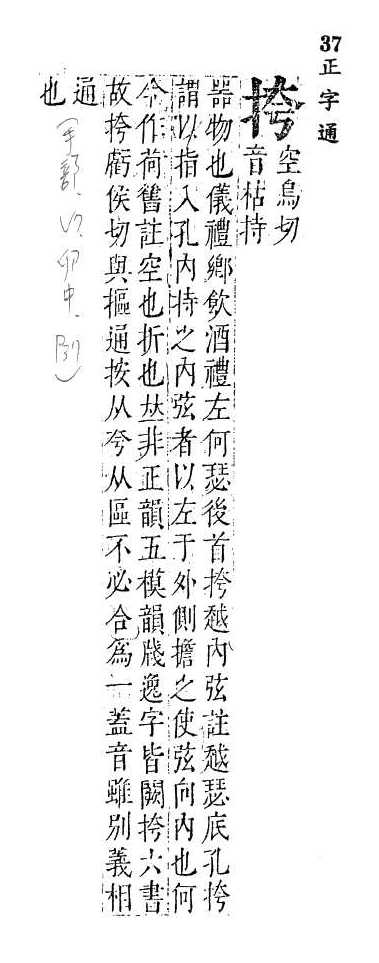 37
正字通
挎
空烏切
音枯持
器物也儀禮鄉飮酒禮左何瑟後首挎越內弦註越瑟底孔挎
謂以指入孔內持之內弦者以左于外側擔之使弦向內也何
今作荷舊註空也折也𠀤非正韻五模韻牋逸字皆闕挎六書
故挎虧侯切與摳通按从夸从區不必合爲一蓋音雖別義相
通
也
(手部、
卯中、